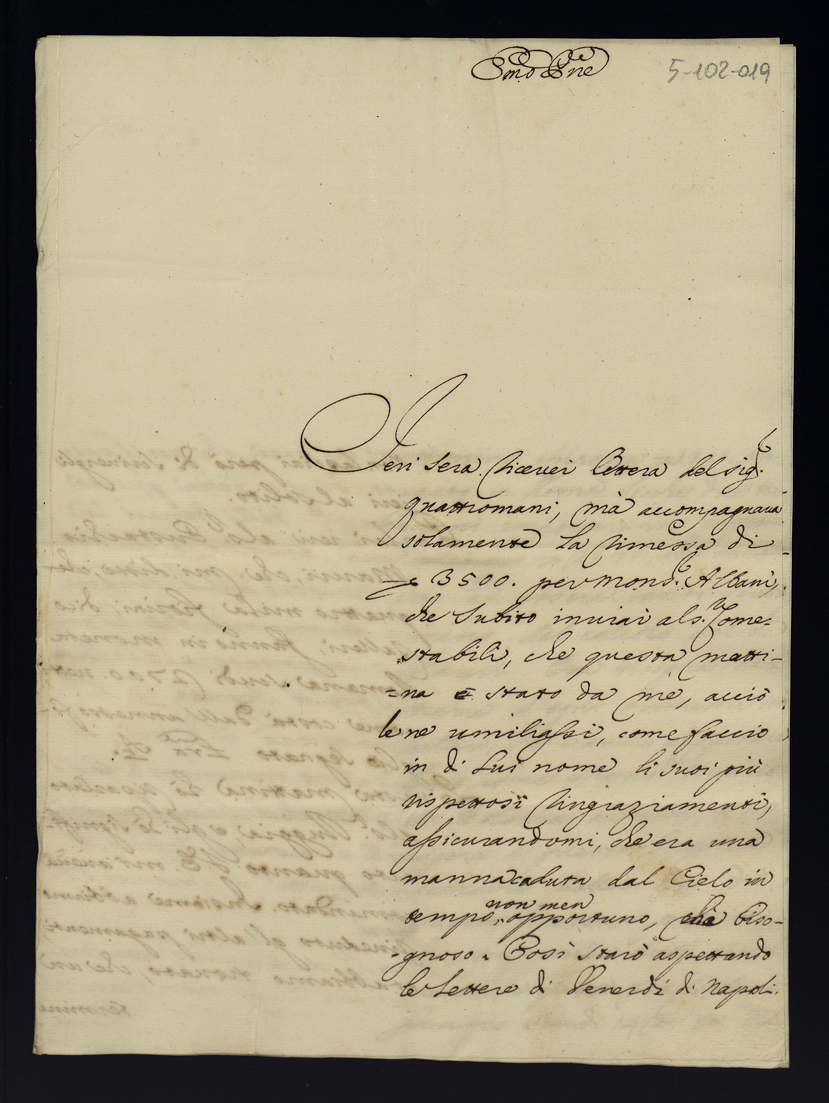 Em̃o Pñe
5-102-019
Ieri sera ricevei lettera del sig.r
Quattromani, mà accompagnava
solamente la rimessa di
3500. per Mons.r Albani,
che subito inviai al s.r Cone=
stabili, che questa matti=
=na è stato da mè, acciò
le ne umiliassi, come faccio
in di lui nome li suoi più
rispettosi ringraziamenti,
assicurandomi, che era una
manna caduta dal Cielo in
tempo, non men opportuno, che biso=
=gnoso. Così starò aspettando
le lettere di Venerdì di Napoli.